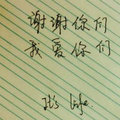 谢谢你们
我爱你们
It's life